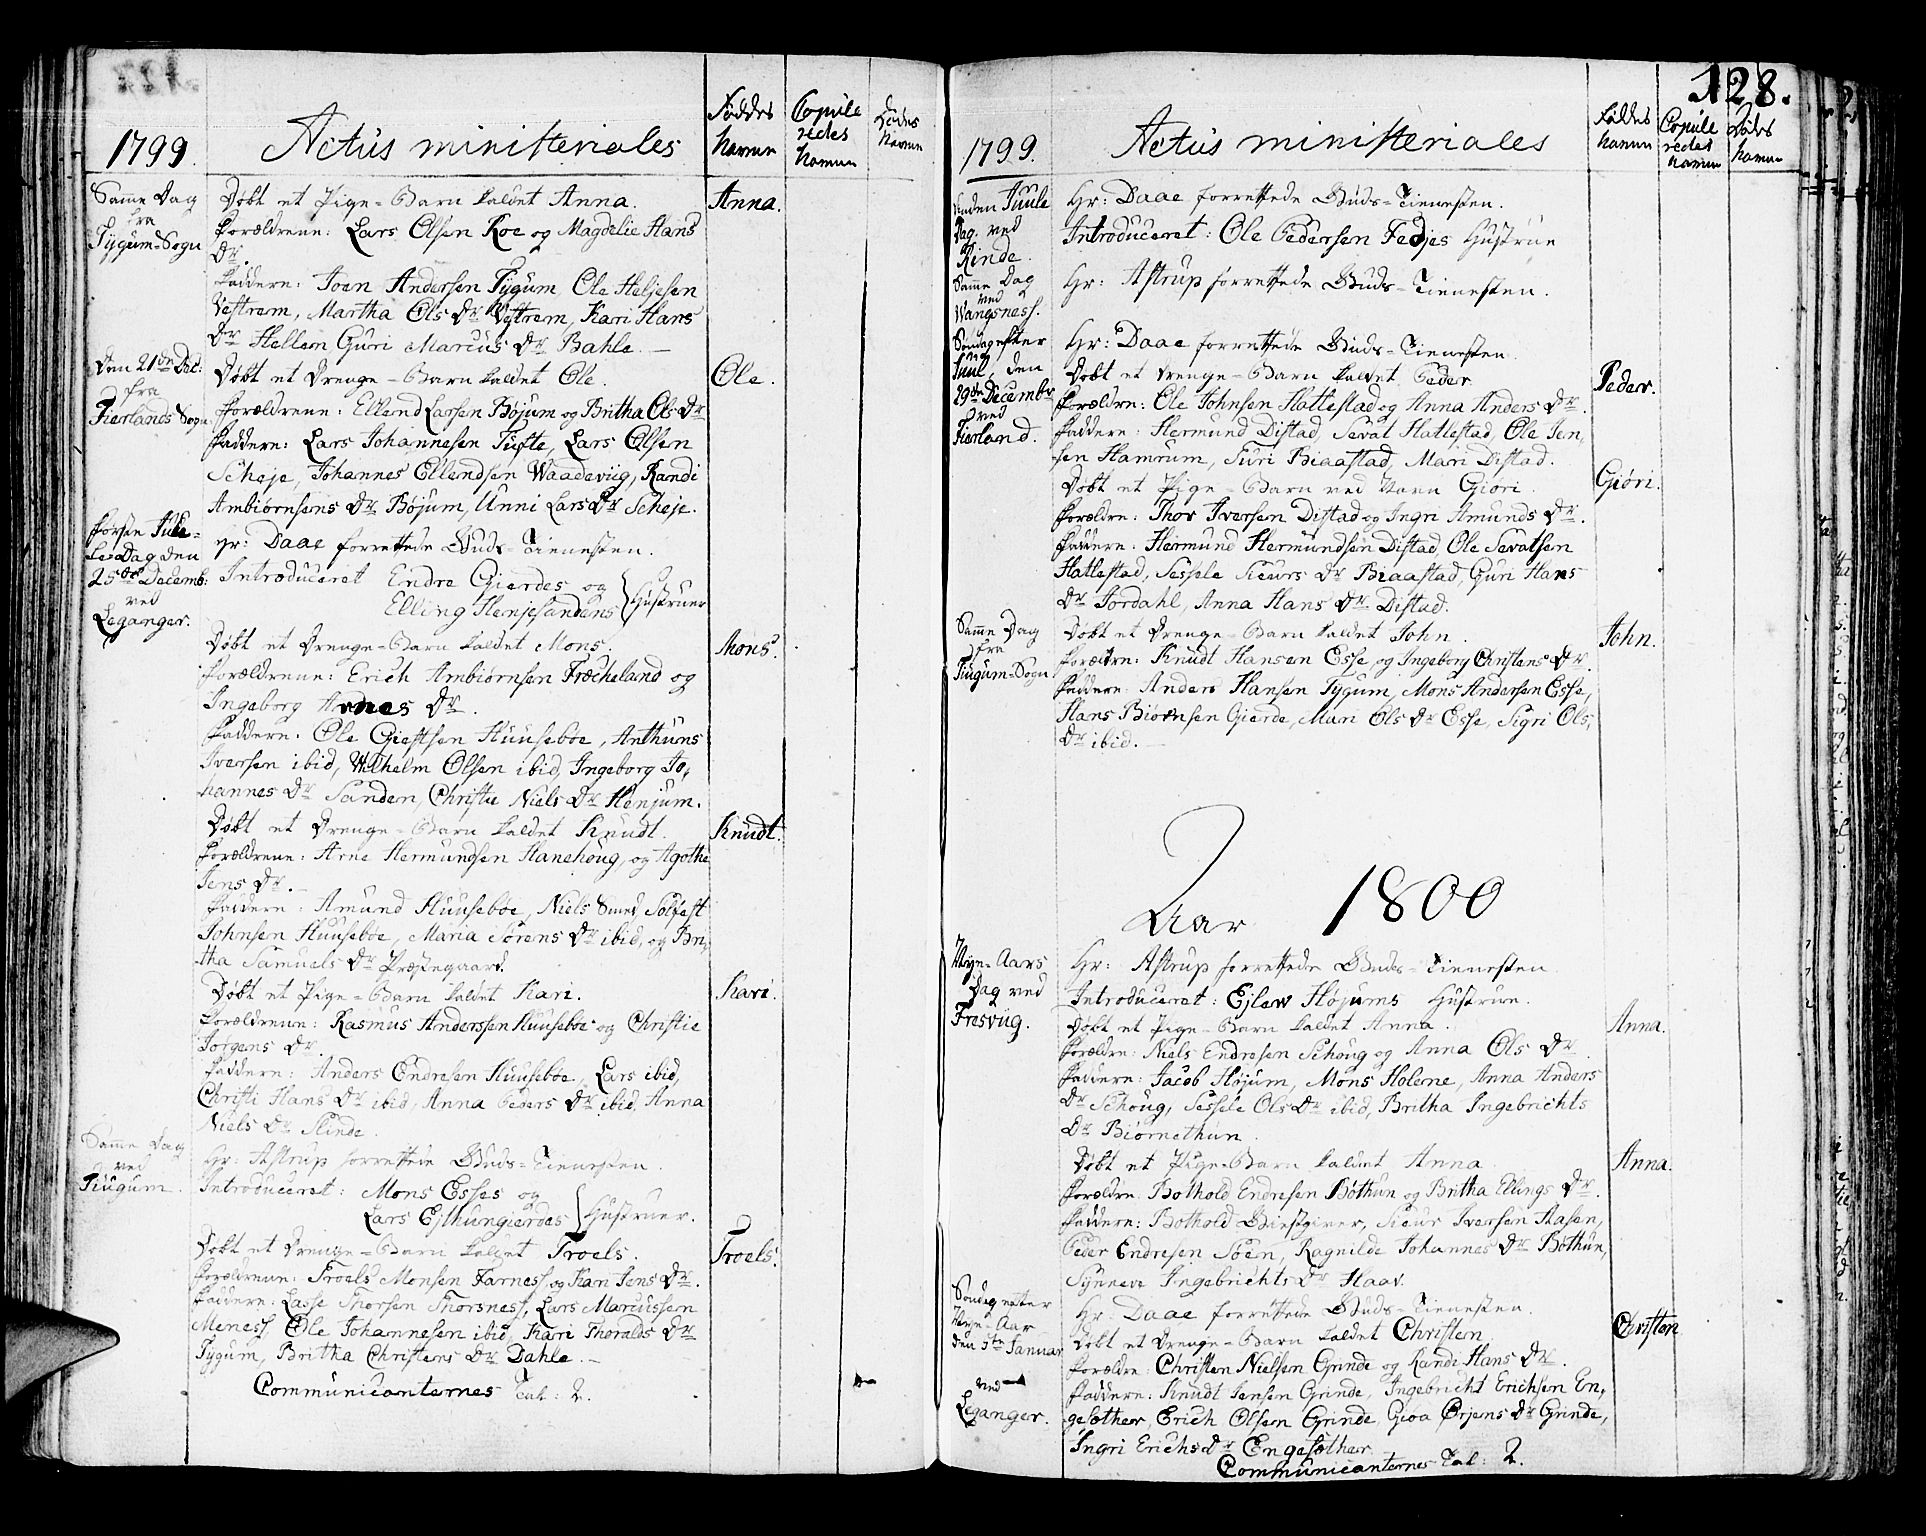 1799.
Actus ministeriales
Føddes Navne
Copuleredes Navne
Dødes Navne
Samme Dag
fra
Tygum-Sogn
Døbt et Pige-Barn kaldet Anna.
Anna.
Forældrene: Lars Olsen Koe og Magdelie Hans
Dr.
Faddere: Joen Andersen Tygum, Ole Heljesen
Vestrem, Martha Ols Dr Vestrem, Kari Hans
Dr Hellem, Guri Marcus Dr Bahle.
Den 21de Dec:
fra
Fierlands Sogn
Døbt et Drenge-Barn kaldet Ole.
Ole.
Forældrene: Ellend Larsen Bøjum og Britha Ols Dr
Faddere: Lars Johannesen Tufte, Lars Olsen
Scheje, Johannes Ellendsen Waadeviig, Randi
Ambiørnsens Dr Bøjum, Unni Lars Dr Scheje.
Første Jule-
Dag den
25de Decemb:
ved
Leganger.
Hr: Daae forrettede Guds-Tienesten.
Introduceret Endre Gierdes og
Elling Henjesandens } Hustruer
Døbt et Drenge-Barn kaldet Mons.
Mons.
Forældrene: Erich Ambiørnsen Fræcheland og
Ingeborg Arnes Dr.
Faddere: Ole Giestsen Huusebøe, Anthuns
Iversen ibid, Wilhelm Olsen ibid, Ingeborg Jo-
hannes Dr Sanden, Christie Niels Dr Henjum.
Døbt et Drenge-Barn kaldet Knudt.
Knudt.
Forældrene: Arne Hermundsen Hanehoug, og Agothe
Jens Dr.
Faddere: Amund Huusebøe, Niels Smed, Solfest
Johnsen Huusebøe, Maria Sørens Dr ibid, og Bri-
tha Samuels Dr Præstegaard.
Døbt et Pige-Barn kaldet Kari.
Kari.
Forældrene: Rasmus Anderssen Huusebøe og Christie
Jorgens Dr.
Faddere: Anders Endresen Huusebøe, Lars ibid,
Christi Hans Dr ibid, Anna Peders Dr ibid, Anna
Niels Dr Slinde.
Samme Dag
ved
Tiugum.
Hr: Astrup forrettede Guds-Tienesten.
Introduceret: Mons Esses og
Lars Ejthungierdes } Hustruer.
Døbt et Drenge-Barn kaldet Troels.
Troels.
Forældrene: Troels Monsen Farness, og Kari Jens Dr.
Faddere: Lasse Thorsen Thorsness, Lars Marcussen
Meness, Ole Johannesen ibid, Kari Thoralds Dr
Tygum, Britha Christens Dr Dahle.
Communicanternes Tal: 2.
128.
1799.
Actus ministeriales
Føddes Navne
Copuleredes Navne
Dødes Navne
Anden Juule
Dag. ved
Rinde.
Hr: Daae forrettede Guds-Tienesten.
Introduceret: Ole Pedersen Fedjes Hustrue
Samme Dag
ved
Wangsness.
Hr: Astrup forrettede Guds-Tienesten.
Søndag efter
Juul, den
29de Decembr
ved
Fierland.
Hr: Daae forrettede Guds-Tienesten.
Døbt et Drenge-Barn kaldet Peder.
Peder.
Forældre: Ole Johnsen Hattestad og Anna Anders Dr.
Faddere: Hermund Distad, Sevat Hatlestad, Ole Jen-
sen Hamrum, Turi Biaastad, Mari Distad.
Døbt et Pige-Barn ved Navn Giøri.
Giøri.
Forældre: Thor Iversen Distad og Ingri Amunds Dr.
Faddere: Hermund Hermundsen Distad, Ole Sevatsen
Hatlestad, Sessele Sieurs Dr Biaastad, Guri Hans
Dr Jordahl, Anna Hans Dr Distad.
Samme Dag
fra
Tiugum-Sogn
Døbt et Drenge-Barn kaldet John.
John.
Forældre: Knudt Hansen Esse, og Ingeborg Christens Dr.
Faddere: Anders Hansen Tygum, Mons Andersen Esse,
Hans Biørnsen Gierde, Mari Ols Dr Esse, Sigri Ols-
Dr ibid.
Aar 1800
Nye-Aars
Dag ved
Fresviig.
Hr: Astrup forrettede Guds-Tienesten
Introduceret: Ejlew Højums Hustrue.
Døbt et Pige-Barn kaldet Anna.
Anna.
Forældre: Niels Endresen Schoug og Anna Ols Dr
Faddere: Jacob Højum, Mons Holene, Anna Anders
Dr Schoug, Sessele Ols Dr ibid, Britha Ingebrichts
Dr Biørnethun.
Døbt et Pige-Barn kaldet Anna.
Anna.
Forældre: Bothold Endresen Bøthun og Britha Ellings Dr.
Faddere: Bothold Giestgiver, Sieur Iversen Aasen,
Peder Endresen Soen, Ragnilde Johannes Dr Bøthun,
Synneve Ingebrichts Dr Haav.
Søndag efter
Nye-Aar
den 5te Januar
ved
Leganger.
Hr: Daae forrettede Guds-Tienesten.
Døbt et Drenge-Barn kaldet Christen.
Christen
Forældre: Christen Nielsen Grinde og Randi Hans Dr.
Faddere: Knudt Jensen Grinde, Ingebricht Erichsen En-
gesæther, Erich Olsen Grinde, Gioa Ørjens Dr Grinde,
Ingri Erichs Dr Engesæther
Communicanternes Tal: 2.